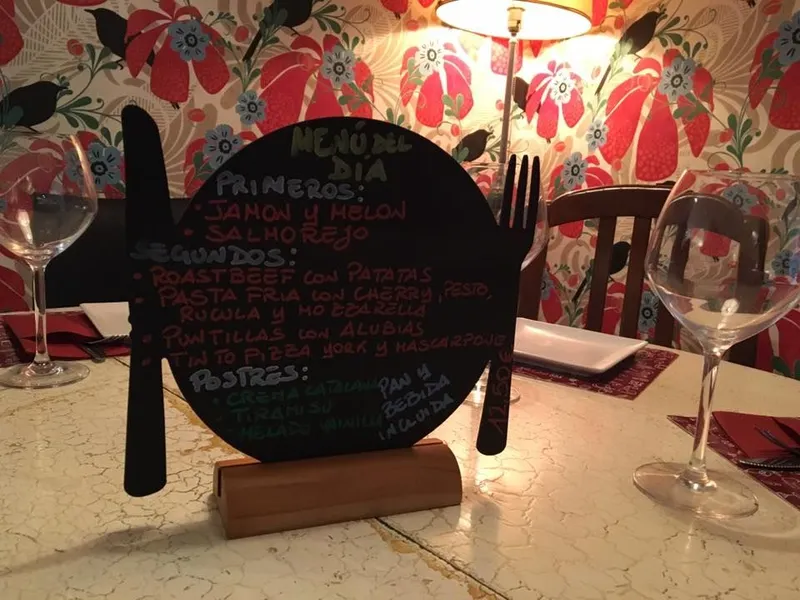 MENÚ DEL
DÍA
PRIMEROS:
• JAMON Y MELON
• SALMOREJO
SEGUNDOS:
• ROAST BEEF CON PATATAS
• PASTA FRIA CON CHERRY, PESTO,
RUCULA Y MOZZARELLA
• PUNTILLAS CON ALUBIAS
• TINTO PIZZA YORK Y MASCARPONE
POSTRES:
• CREMA CATALANA
• TIRAMISU
• HELADO VAINILLA
PAN Y
BEBIDA
INCLUIDA
12.50€